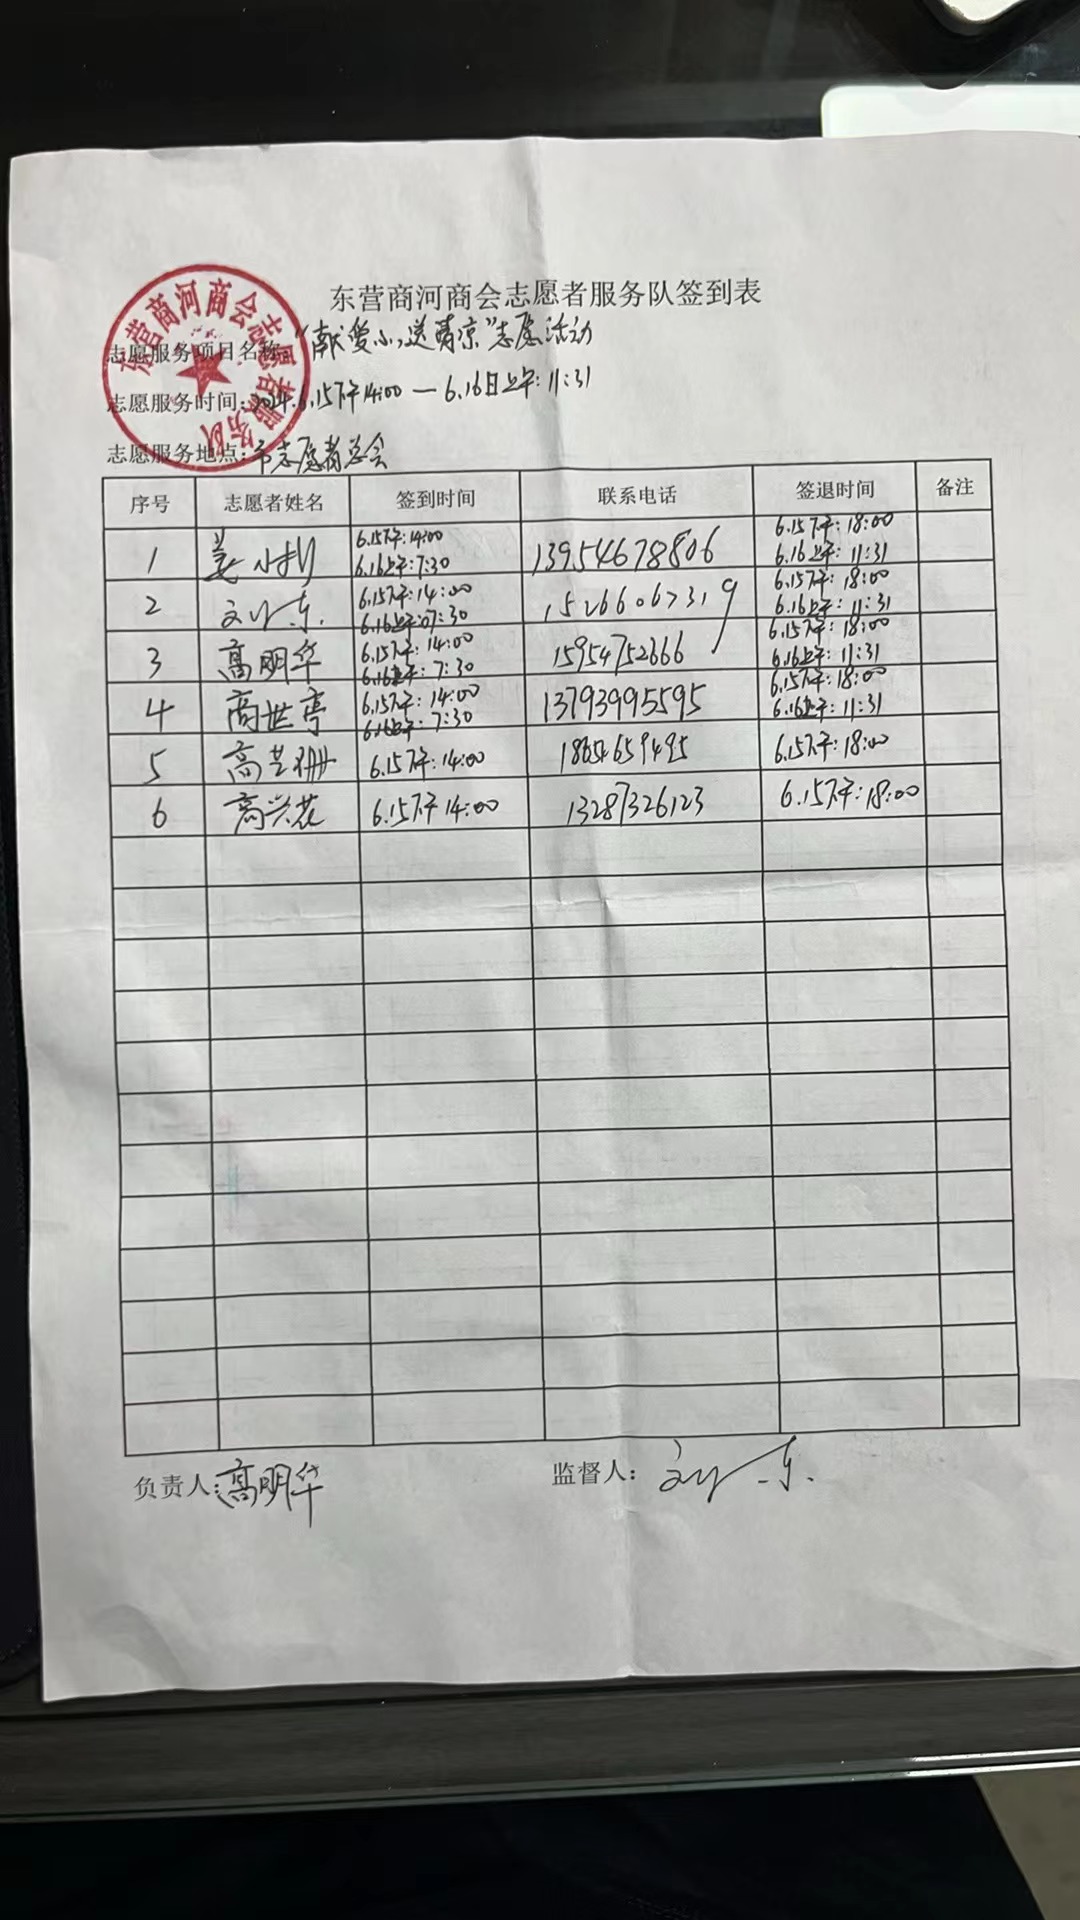 东营商河商会志愿者服务队
东营商河商会志愿者服务队签到表
志愿服务项目名称:“献爱心,送清凉”志愿活动
志愿服务时间:2024.6.15下午14:00—6.16日上午:11:31
志愿服务地点:市志愿者总会
序号 志愿者姓名 签到时间 联系电话 签退时间 备注
1 姜小 6.15下午:14:00 6.16上午:7:30 13954678806 6.15下午:18:00 6.16上午:11:31
2 刘东 6.15下午:14:00 6.16上午:07:30 15266067319 6.15下午:18:00 6.16上午:11:31
3 高明华 6.15下午:14:00 6.16上午:7:30 15954752666 6.15下午:18:00 6.16上午:11:31
4 高世亭 6.15下午:14:00 6.16上午:7:30 13793995595 6.15下午:18:00 6.16上午:11:31
5 高芸珊 6.15下午:14:00 18654659495 6.15下午:18:00
6 高兴花 6.15下午14:00 13287326123 6.15下午:18:00
负责人:高明华 监督人:刘东